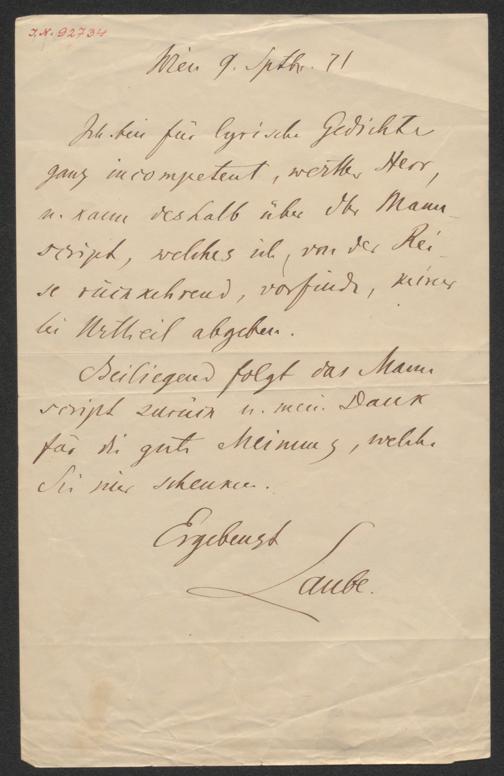 I.N. 92734
Wien 9. Sptbr. 71
Ich bin für lyrische Gedichte
ganz incompetent, werther Herr,
u. kann deshalb über Ihr Manu
script, welches ich, von der Rei-
se rückkehrend, vorfinde, keiner
lei Urtheil abgeben.
Beiliegend folgt das Manu
script zurück u. mein Dank
für die gute Meinung, welche
Sie mir schenken.
Ergebenst
Laube.